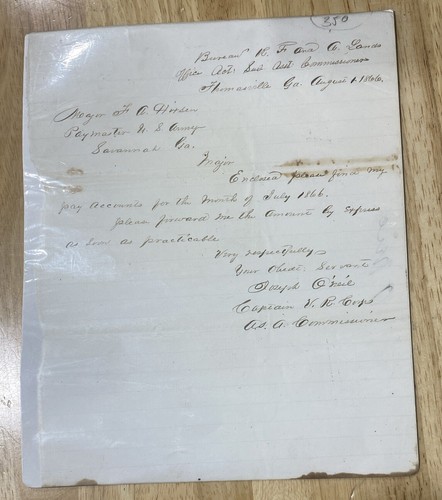 350
Bureau R. F. and A. Lands
Office Act. Sub Asst Commissioner
Thomasville Ga. August 1 1866.
Major F. A.
Paymaster U. S. Army
Savannah Ga.
Major
Enclosed please find my
pay accounts for the Month of July 1866.
please forward me the Amount by Express
as soon as practicable
Very respectfully
Your Obedt. Servant
Joseph O'Neil
Captain V. R. Corps
A. S. A. Commissioner